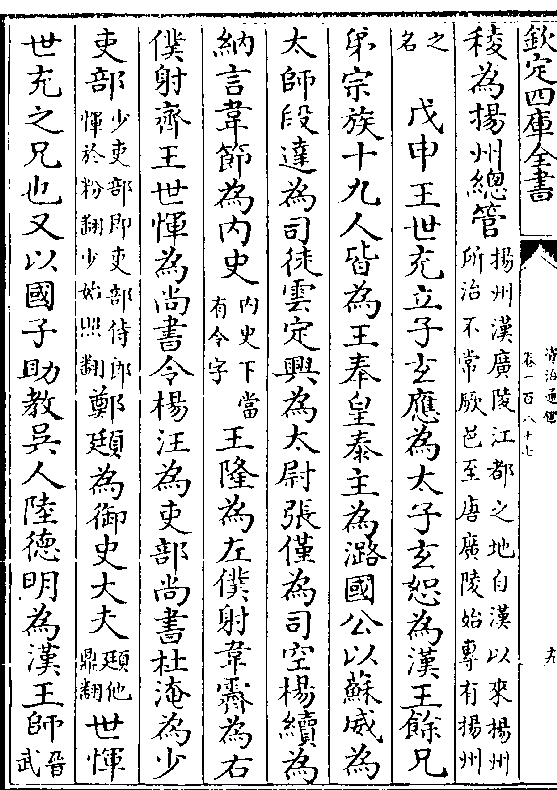 欽定四庫全書
資治通鑑
卷一百八十七
稜為揚州總管揚州漢廣陵江都之地自漢以來揚州
所治不常厥邑至唐廣陵始專有揚州
之
名 戊申王世充立子玄應為太子玄恕為漢王餘兄
弟宗族十九人皆為王奉皇泰主為潞國公以蘇威為
太師段達為司徒雲定興為太尉張僅為司空楊續為
納言韋節為內史內史下當
有令字王隆為左僕射韋霽為右
僕射齊王世惲為尚書令楊汪為吏部尚書杜淹為少
吏部少吏部即吏部侍郎
惲於粉翻少始照翻鄭頲為御史大夫頲他
鼎翻世惲
世充之兄也又以國子助教吳人陸德明為漢王師晉
武